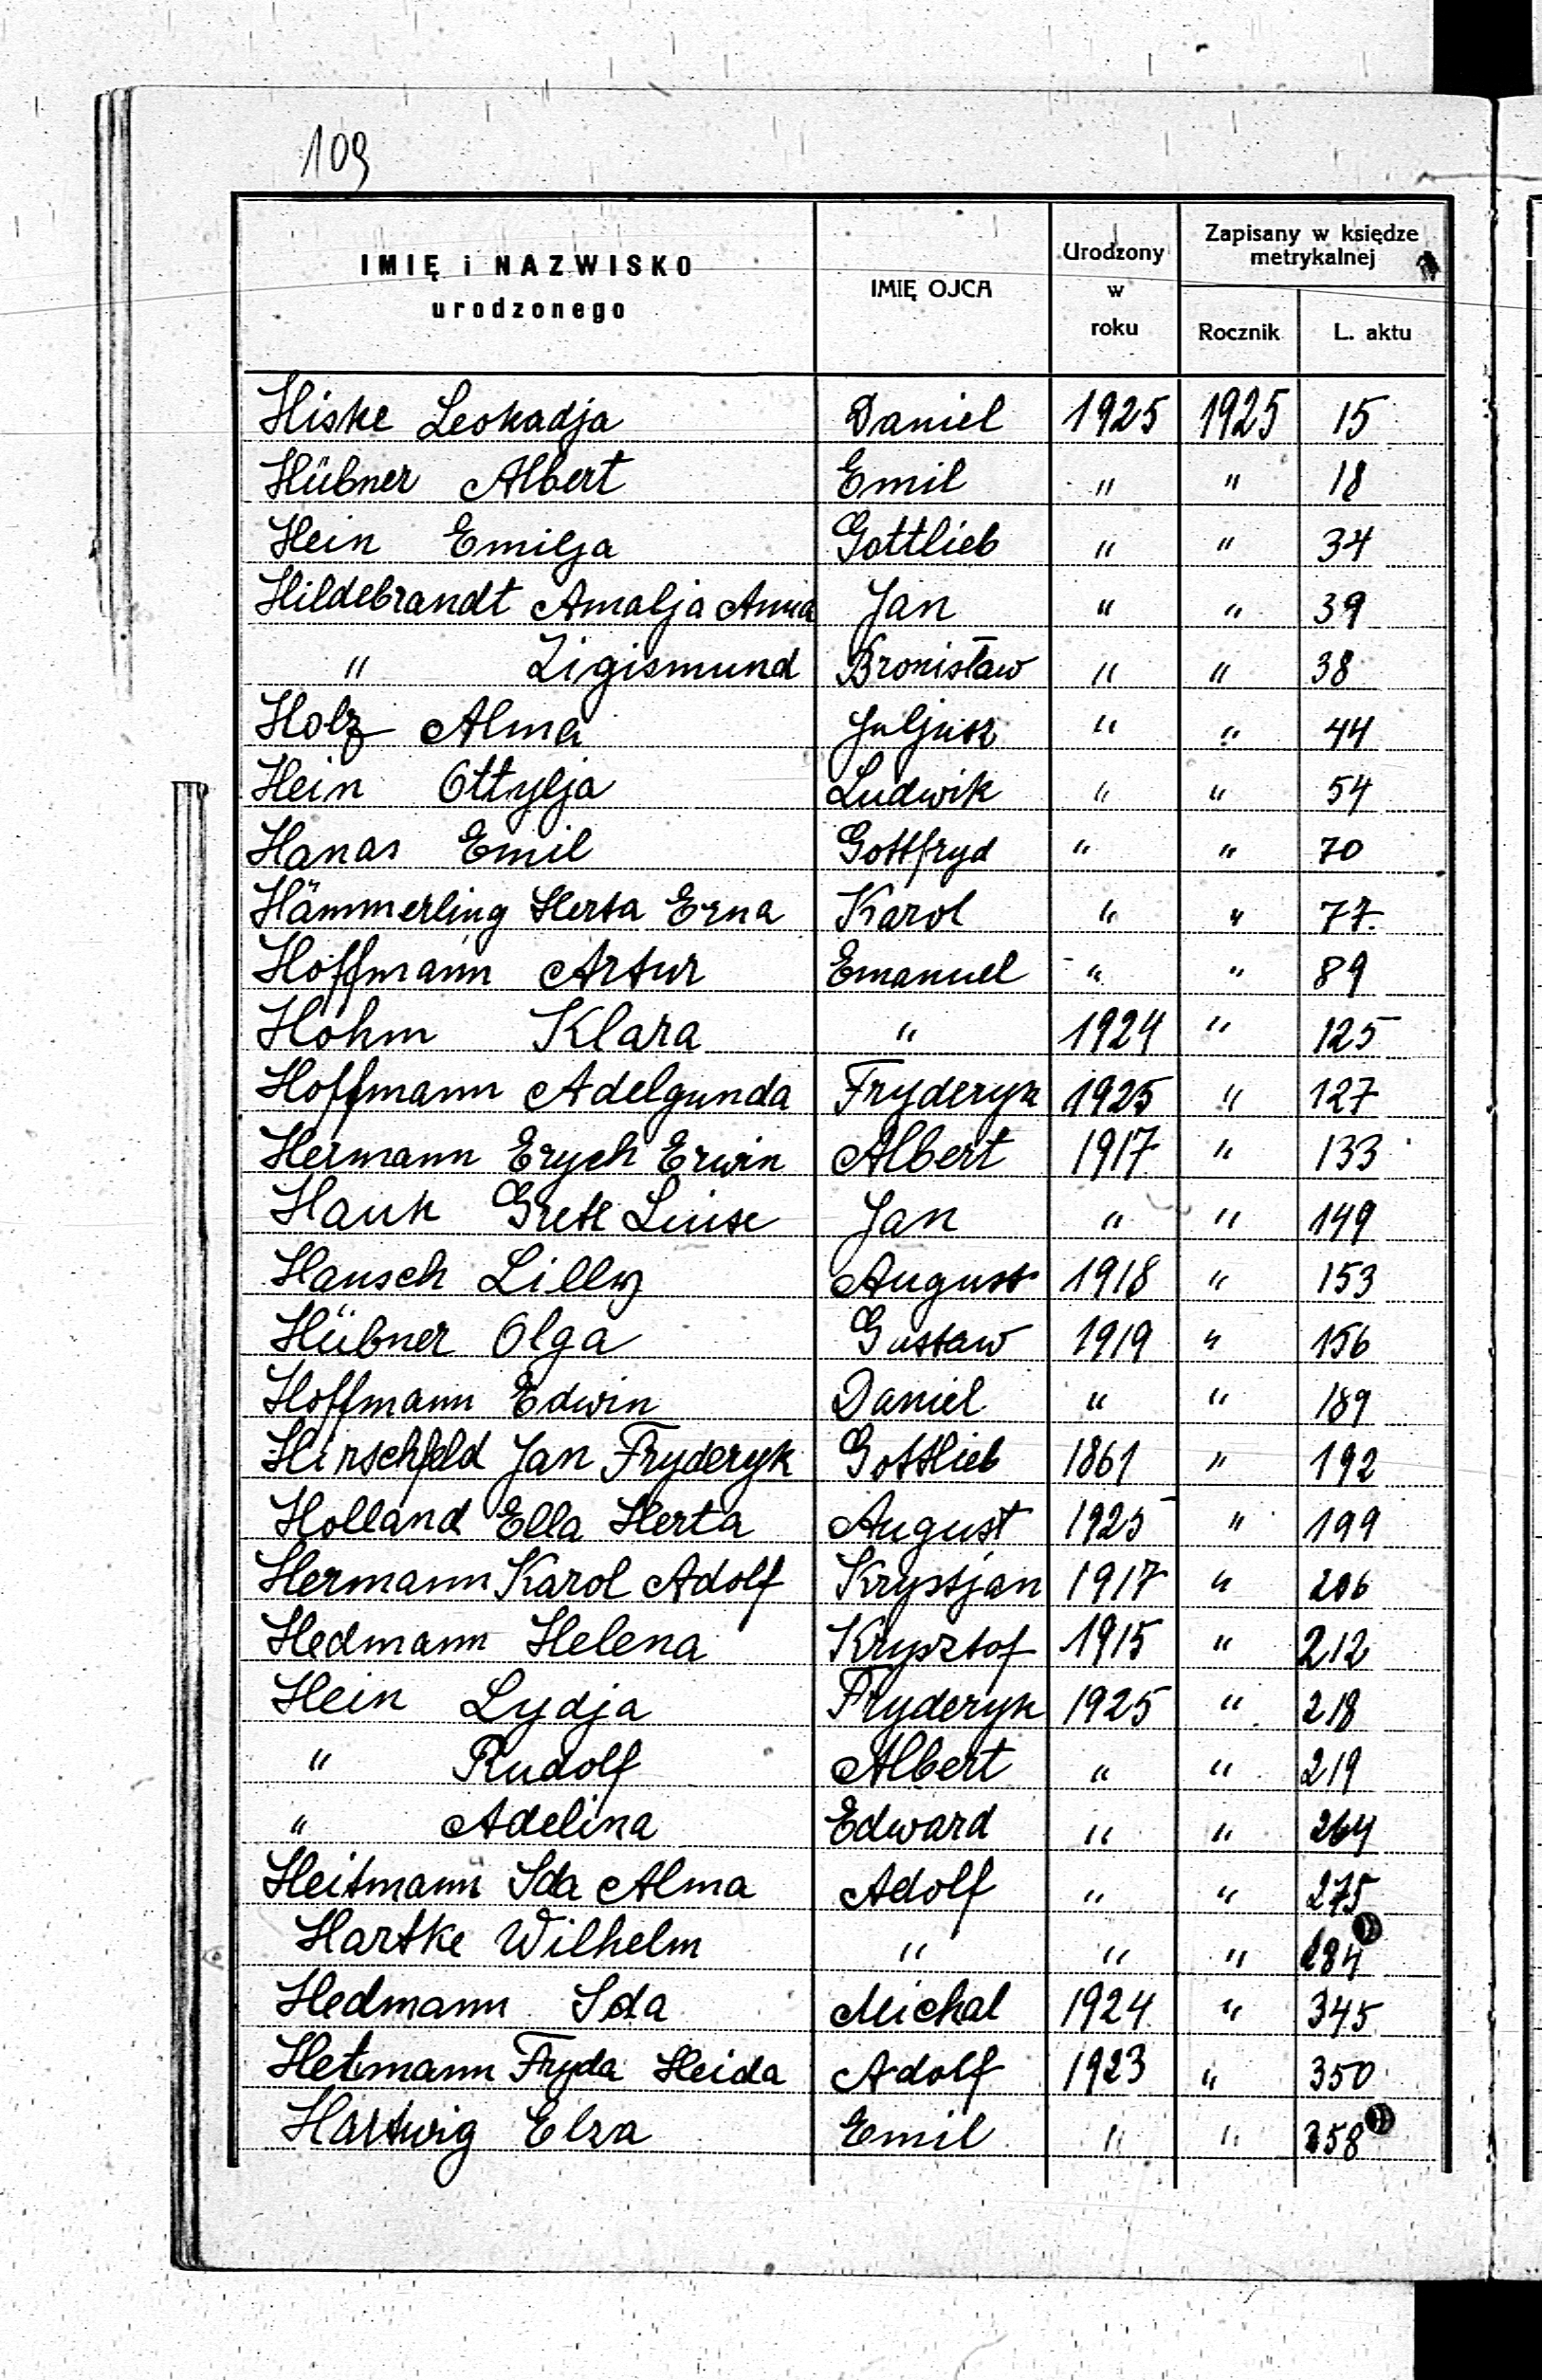 109
IMIĘ i NAZWISKO
urodzonego
IMIĘ OJCA
Urodzony
w
roku
Zapisany w księdze
metrykalnej
Rocznik
L. aktu
Hiske Leokadja Daniel 1925 1925 15
Hübner Albert Emil " " 18
Hein Emilja Gottlieb " " 34
Hildebrandt Amalja Anna Jan " " 39
" Zigismund Bronisław " " 38
Holz Alma Juljusz " " 44
Hein Ottylja Ludwik " " 54
Hanas Emil Gottfryd " " 70
Hämmerling Herta Erna Karol " " 77
Hoffmann Artur Emanuel " " 89
Hohm Klara " 1924 " 125
Hoffmann Adelgunda Fryderyk 1925 " 127
Hermann Erych Erwin Albert 1917 " 133
Hauk Grete Luise Jan " " 149
Hausch Lilly August 1918 " 153
Hübner Olga Gustaw 1919 " 156
Hoffmann Edwin Daniel " " 189
Hirschfeld Jan Fryderyk Gottlieb 1861 " 192
Holland Ella Herta August 1925 " 199
Hermann Karol Adolf Krystjan 1917 " 206
Hedmann Helena Krysztof 1915 " 212
Hein Lydja Fryderyk 1925 " 218
" Rudolf Albert " " 219
" Adelina Edward " " 264
Heitmann Ida Alma Adolf " " 275
Hartke Wilhelm " " " 284
Hedmann Ida Michal 1924 " 345
Hetmann Fryda Heida Adolf 1923 " 350
Hartwig Elza Emil " " 358